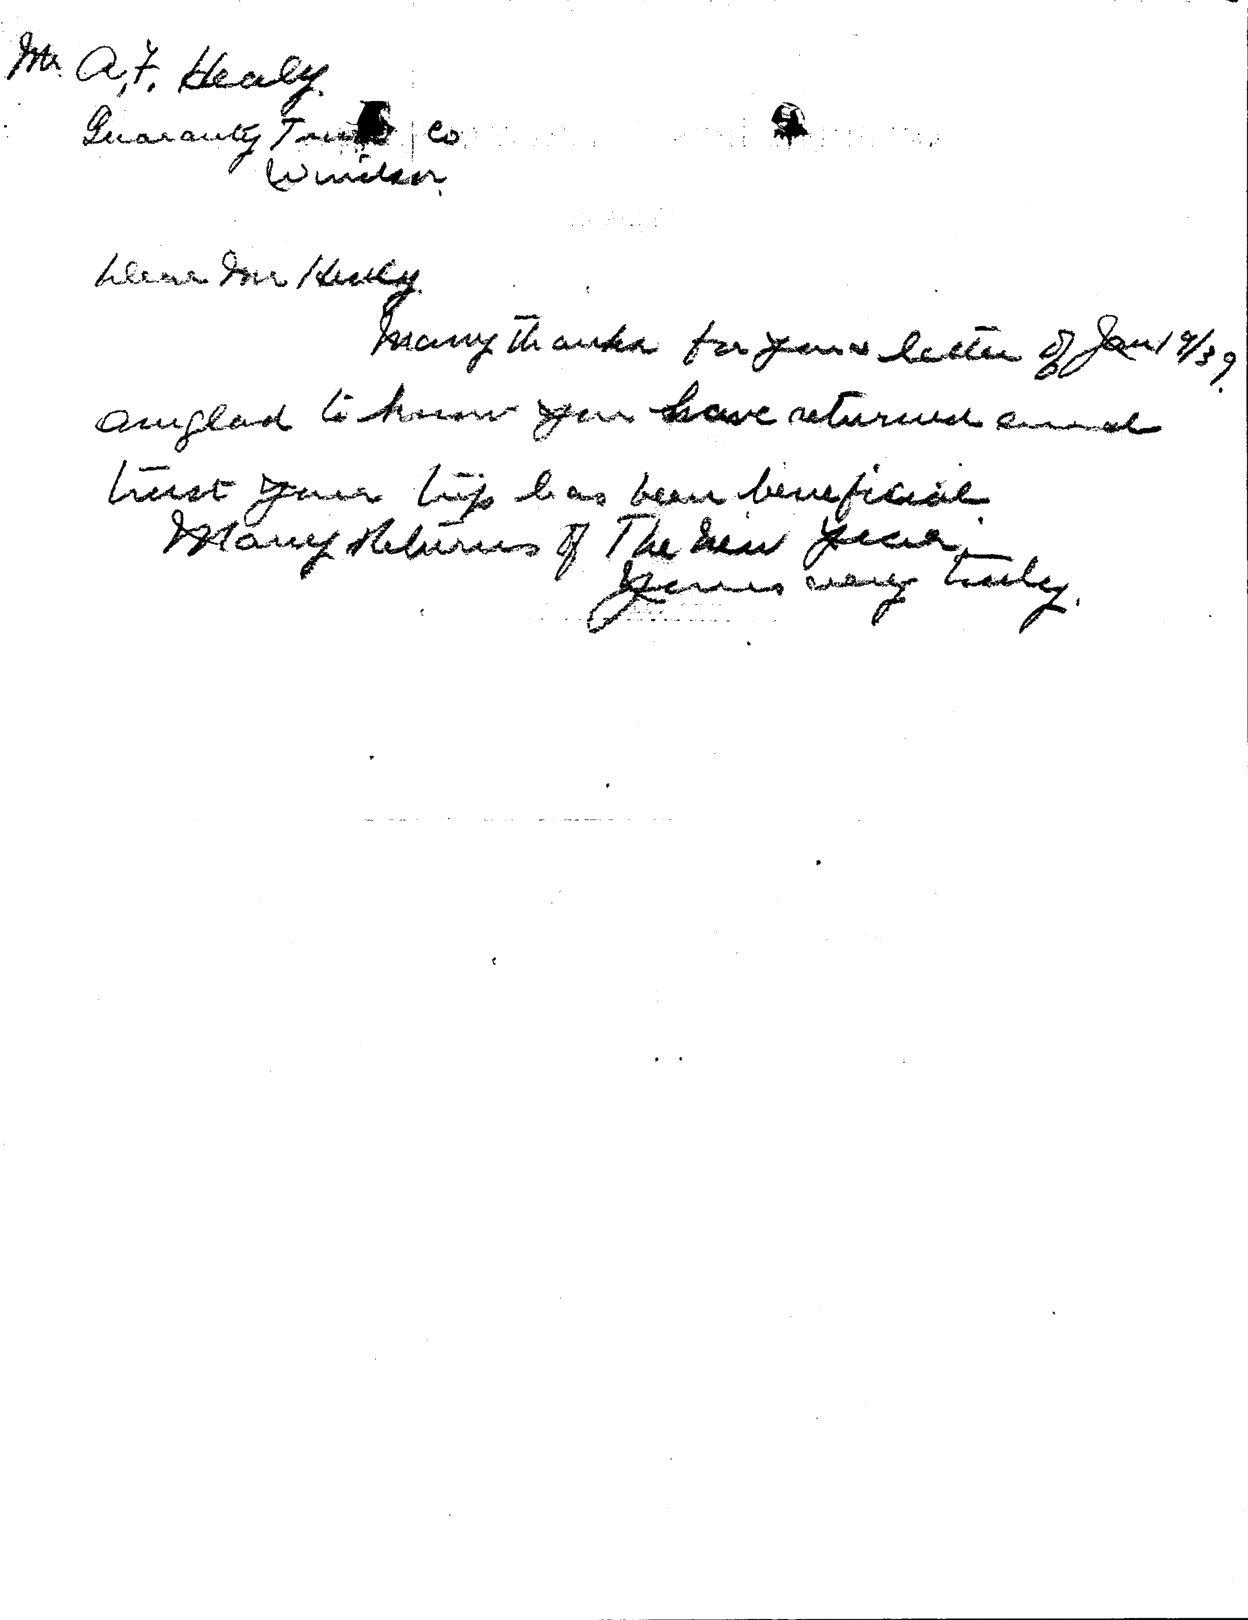 Mr. A. F. Healy.
Guaranty Trust Co
Windsor.
Dear Mr Healy.
Many thanks for your letter of Jan 19/39.
am glad to know you have returned and
trust your trip has been beneficial
Many Returns of The New Year.
Yours very truly.